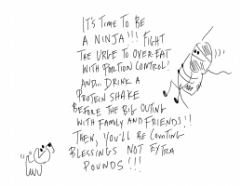 IT'S TIME TO BE
A NINJA!!! FIGHT
THE URGE TO OVER-EAT
WITH PORTION CONTROL!
AND... DRINK A
PROTEIN SHAKE
BEFORE THE BIG OUTING
WITH FAMILY AND FRIENDS!!
THEN, YOU'LL BE COUNTING
BLESSINGS NOT EXTRA
POUNDS!!!